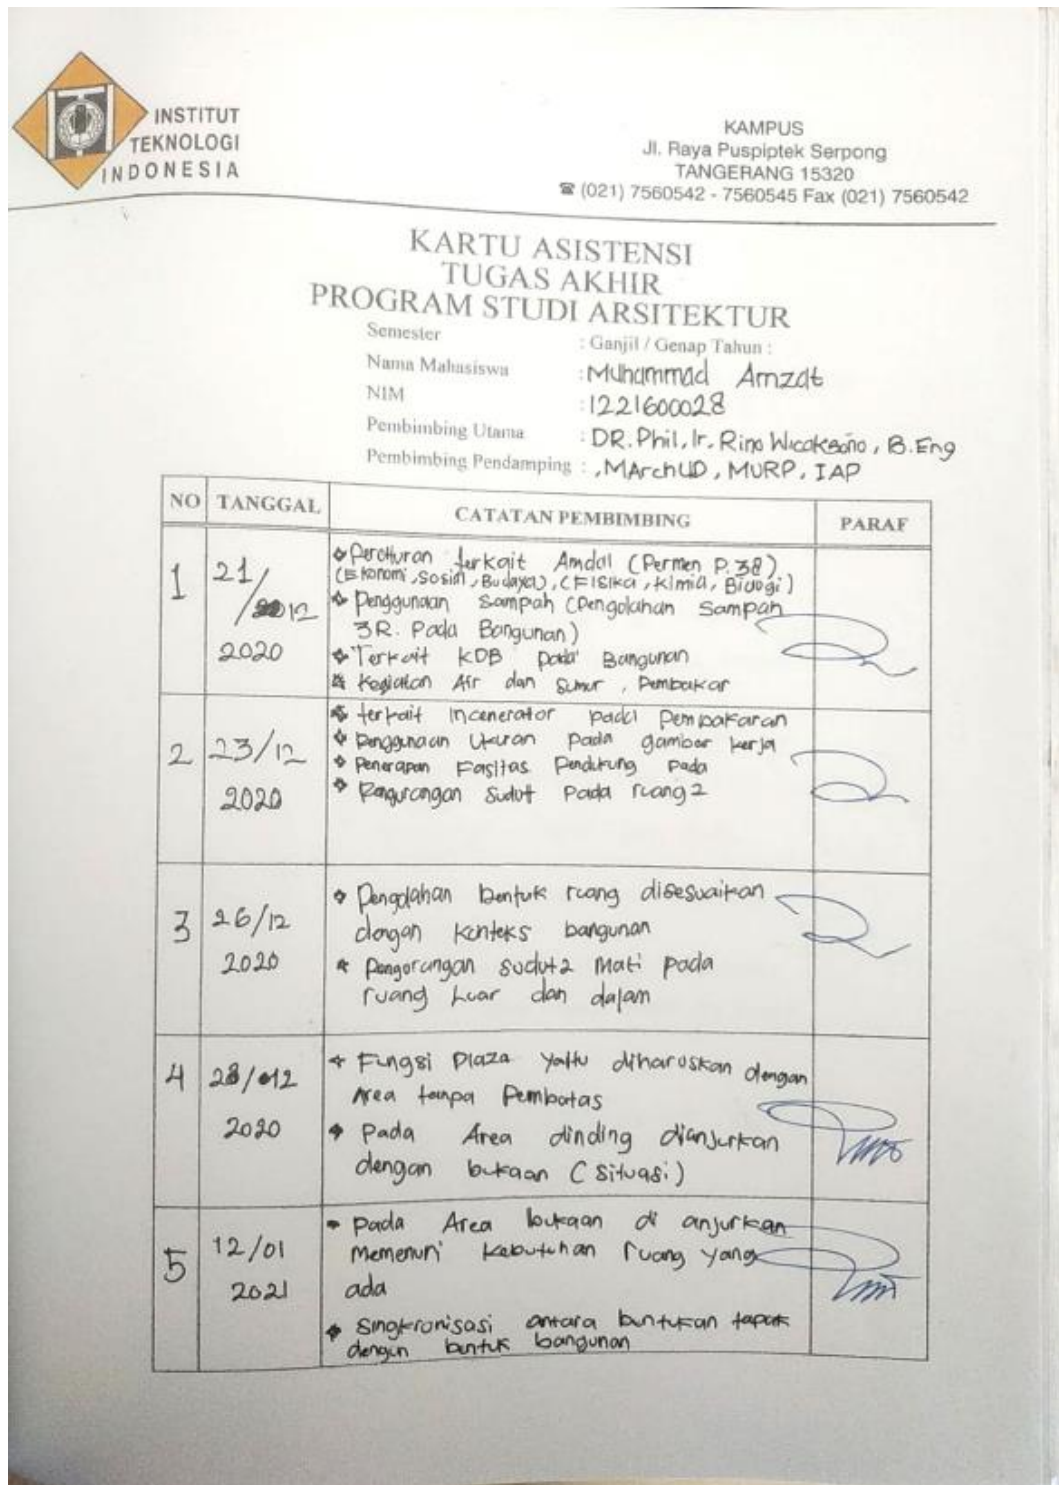 INSTITUT
TEKNOLOGI
INDONESIA
KAMPUS
Jl. Raya Puspiptek Serpong
TANGERANG 15320
☎ (021) 7560542 - 7560545 Fax (021) 7560542
KARTU ASISTENSI
TUGAS AKHIR
PROGRAM STUDI ARSITEKTUR
Semester : Ganjil / Genap Tahun :
Nama Mahasiswa : Muhammad Amzat
NIM : 1221600028
Pembimbing Utama : DR. Phil, Ir. Rino Wicaksono, B.Eng
Pembimbing Pendamping : , MArchUD, MURP, IAP
NO TANGGAL CATATAN PEMBIMBING PARAF
1 21/12 2020
Peraturan terkait Amdal (Permen P.38)
(Ekonomi, Sosial, Budaya), (Fisika, Kimia, Biologi)
Penggunaan Sampah (Pengolahan Sampah
3R. Pada Bangunan)
Terkait KDB pada Bangunan
Kegiatan Air dan Sumur, Pembakar
2 23/12 2020
terkait Incenerator pada Pembakaran
Penggunaan Ukuran pada gambar kerja
Penerapan Fasltas Pendukung pada
Pengurangan Sudut Pada ruang2
3 26/12 2020
Pengolahan bentuk ruang disesuaikan
dengan konteks bangunan
Pengurangan sudut2 Mati pada
ruang Luar dan dalam
4 28/12 2020
Fungsi Plaza yaitu diharuskan dengan
Area tanpa Pembatas
Pada Area dinding dianjurkan
dengan bukaan (Situasi)
5 12/01 2021
Pada Area bukaan di anjurkan
Memenuri Kebutuhan ruang yang
ada
Singkronisasi antara buntukan tapak
dengan bentuk bangunan